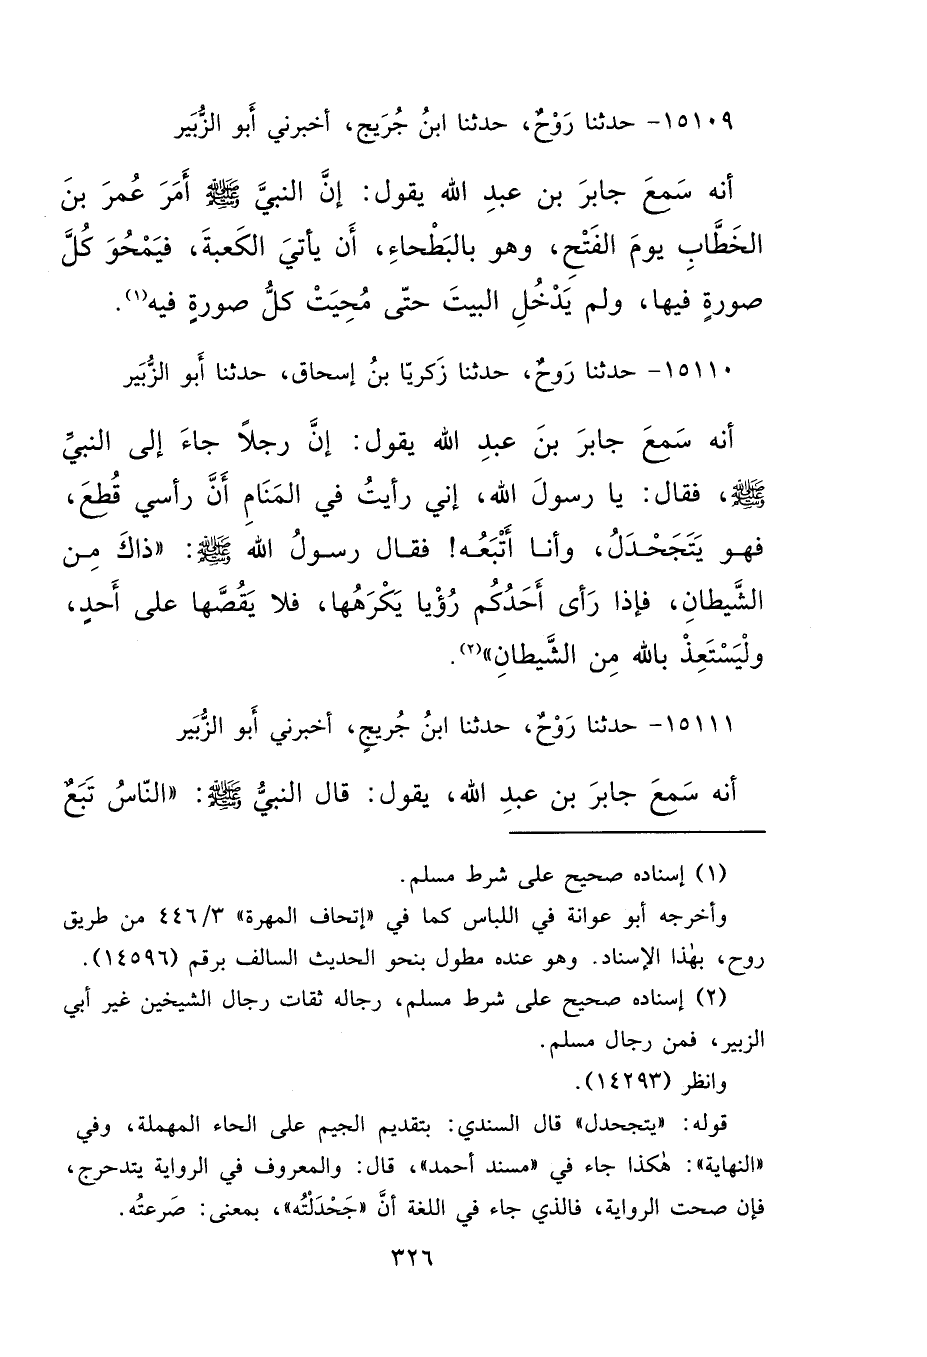 ١٥١٠٩- حدثنا رَوْحٌ، حدثنا ابنُ جُرَيج، أخبرني أَبو الزُّبَير
أنه سَمِعَ جابرَ بن عبدِ الله يقول: إنَّ النبيَّ ﷺ أَمَرَ عُمرَ بنَ
الخَطَّابِ يومَ الفَتْحِ، وهو بالبَطْحاءِ، أَن يأتيَ الكَعبةَ، فيَمْحُوَ كُلَّ
صورةٍ فيها، ولم يَدْخُلِ البيتَ حتّى مُحِيَتْ كلُّ صورةٍ فيه(١).
١٥١١٠- حدثنا رَوحٌ، حدثنا زَكريّا بنُ إسحاق، حدثنا أَبو الزُّبَير
أنه سَمِعَ جابرَ بنَ عبدِ الله يقول: إنَّ رجلاً جاءَ إلى النبيِّ
ﷺ، فقال: يا رسولَ الله، إني رأيتُ في المَنَامِ أَنَّ رأسي قُطِعَ،
فهو يَتَجَحْدَلُ، وأنا أَتْبَعُه! فقال رسولُ الله ﷺ: «ذاكَ مِن
الشَّيطانِ، فإذا رَأى أَحَدُكُم رُؤْيا يَكْرَهُها، فلا يَقُصَّها على أَحدٍ،
ولْيَسْتَعِذْ بالله مِن الشَّيطانِ»(٢).
١٥١١١- حدثنا رَوْحٌ، حدثنا ابنُ جُريجٍ، أخبرني أَبو الزُّبَير
أنه سَمِعَ جابرَ بن عبدِ الله، يقول: قال النبيُّ ﷺ: «النّاسُ تَبَعٌ
(١) إسناده صحيح على شرط مسلم.
وأخرجه أبو عوانة في اللباس كما في «إتحاف المهرة» ٤٤٦/٣ من طريق
روح، بهٰذا الإسناد. وهو عنده مطول بنحو الحديث السالف برقم (١٤٥٩٦).
(٢) إسناده صحيح على شرط مسلم، رجاله ثقات رجال الشيخين غير أبي
الزبير، فمن رجال مسلم.
وانظر (١٤٢٩٣).
قوله: «يتجحدل» قال السندي: بتقديم الجيم على الحاء المهملة، وفي
«النهاية»: هٰكذا جاء في «مسند أحمد»، قال: والمعروف في الرواية يتدحرج،
فإن صحت الرواية، فالذي جاء في اللغة أنَّ «جَحْدَلْتُه»، بمعنى: صَرعتُه.
٣٢٦